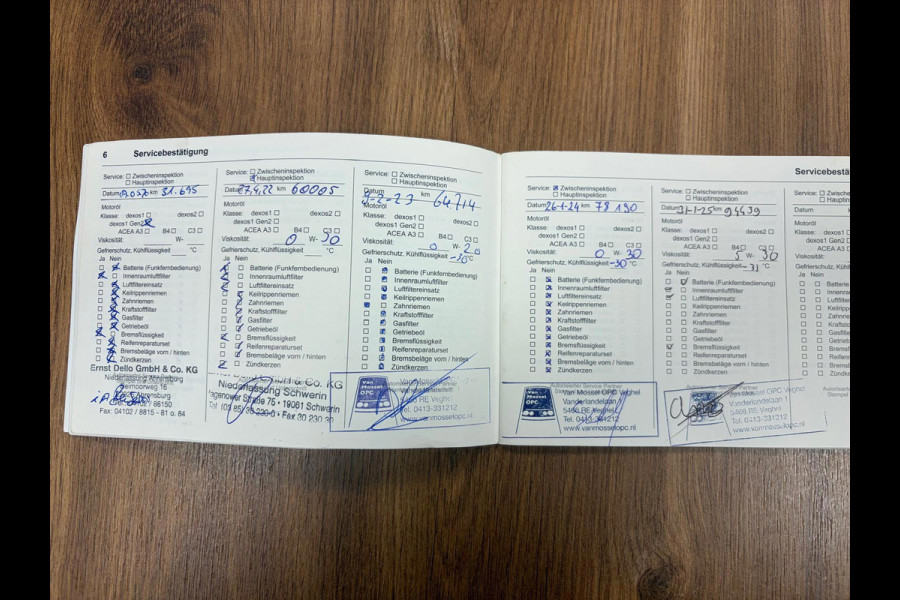 6 Servicebestätigung
Service: Zwischeninspektion
Hauptinspektion
Datum km 31.695
Motoröl
Klasse: dexos1 dexos2
dexos1 Gen2
ACEA A3 B4 C3
Viskosität: W-
Gefrierschutz, Kühlflüssigkeit °C
Ja Nein
Batterie (Funkfernbedienung)
Innenraumluftfilter
Luftfiltereinsatz
Keilrippenriemen
Zahnriemen
Kraftstofffilter
Gasfilter
Getriebeöl
Bremsflüssigkeit
Reifenreparaturset
Bremsbeläge vorn / hinten
Zündkerzen
Ernst Dello GmbH & Co. KG
Niederlassung Ahrensburg
Beimoorweg 16
Fax: 04102 / 8815 - 81 o. 84
Service: Zwischeninspektion
Hauptinspektion
Datum 27.4.22 km 60005
Motoröl
Klasse: dexos1 dexos2
dexos1 Gen2
ACEA A3 B4 C3
Viskosität: 0 W- 30
Gefrierschutz, Kühlflüssigkeit °C
Ja Nein
Batterie (Funkfernbedienung)
Innenraumluftfilter
Luftfiltereinsatz
Keilrippenriemen
Zahnriemen
Kraftstofffilter
Gasfilter
Getriebeöl
Bremsflüssigkeit
Reifenreparaturset
Bremsbeläge vorn / hinten
Zündkerzen
& Co. KG
Niederlassung Schwerin
Straße 75 • 19061 Schwerin
Service: Zwischeninspektion
Hauptinspektion
Datum 9-2-23 km 64714
Motoröl
Klasse: dexos1 dexos2
dexos1 Gen2
ACEA A3 B4 C3
Viskosität: 0 W- 20
Gefrierschutz, Kühlflüssigkeit -30 °C
Ja Nein
Batterie (Funkfernbedienung)
Innenraumluftfilter
Luftfiltereinsatz
Keilrippenriemen
Zahnriemen
Kraftstofffilter
Gasfilter
Getriebeöl
Bremsflüssigkeit
Reifenreparaturset
Bremsbeläge vorn / hinten
Zündkerzen
Van Mossel OPC
Van Mossel OPC Veghel
Vanderlandelaan
5466 RE Veghel
Tel. 0413-331212
www.vanmosselopc.nl
Servicebestä
Service: Zwischeninspektion
Hauptinspektion
Datum 26-1-24 km 78190
Motoröl
Klasse: dexos1 dexos2
dexos1 Gen2
ACEA A3 B4 C3
Viskosität: 0 W- 30
Gefrierschutz, Kühlflüssigkeit -30 °C
Ja Nein
Batterie (Funkfernbedienung)
Innenraumluftfilter
Luftfiltereinsatz
Keilrippenriemen
Zahnriemen
Kraftstofffilter
Gasfilter
Getriebeöl
Bremsflüssigkeit
Reifenreparaturset
Bremsbeläge vorn / hinten
Zündkerzen
Autorisierter Service Partner
Van Mossel OPC
Van Mossel OPC Veghel
Vanderlandelaan
5466 RE Veghel
Tel. 0413-331212
www.vanmosselopc.nl
Service: Zwischeninspektion
Hauptinspektion
Datum 31-1-25 km 94439
Motoröl
Klasse: dexos1 dexos2
dexos1 Gen2
ACEA A3 B4 C3
Viskosität: 5 W- 30
Gefrierschutz, Kühlflüssigkeit -31 °C
Ja Nein
Batterie (Funkfernbedienung)
Innenraumluftfilter
Luftfiltereinsatz
Keilrippenriemen
Zahnriemen
Kraftstofffilter
Gasfilter
Getriebeöl
Bremsflüssigkeit
Reifenreparaturset
Bremsbeläge vorn / hinten
Zündkerzen
Autorisierter Service Partner
Vanderlandelaan
5466 RE Veghel
Tel. 0413-331212
www.vanmosselopc.nl
Service:
Datum
Motoröl
Klasse: dexos1
dexos1 Gen2
ACEA A3
Viskosität:
Gefrierschutz, Kühlflüss
Ja Nein
Batterie
Innenrau
Luftfilter
Keilrippe
Zahnrie
Kraftstof
Gasfilter
Getriebe
Bremsflü
Reifenre
Bremsbe
Zündkerz
Autorisierter
Stempel